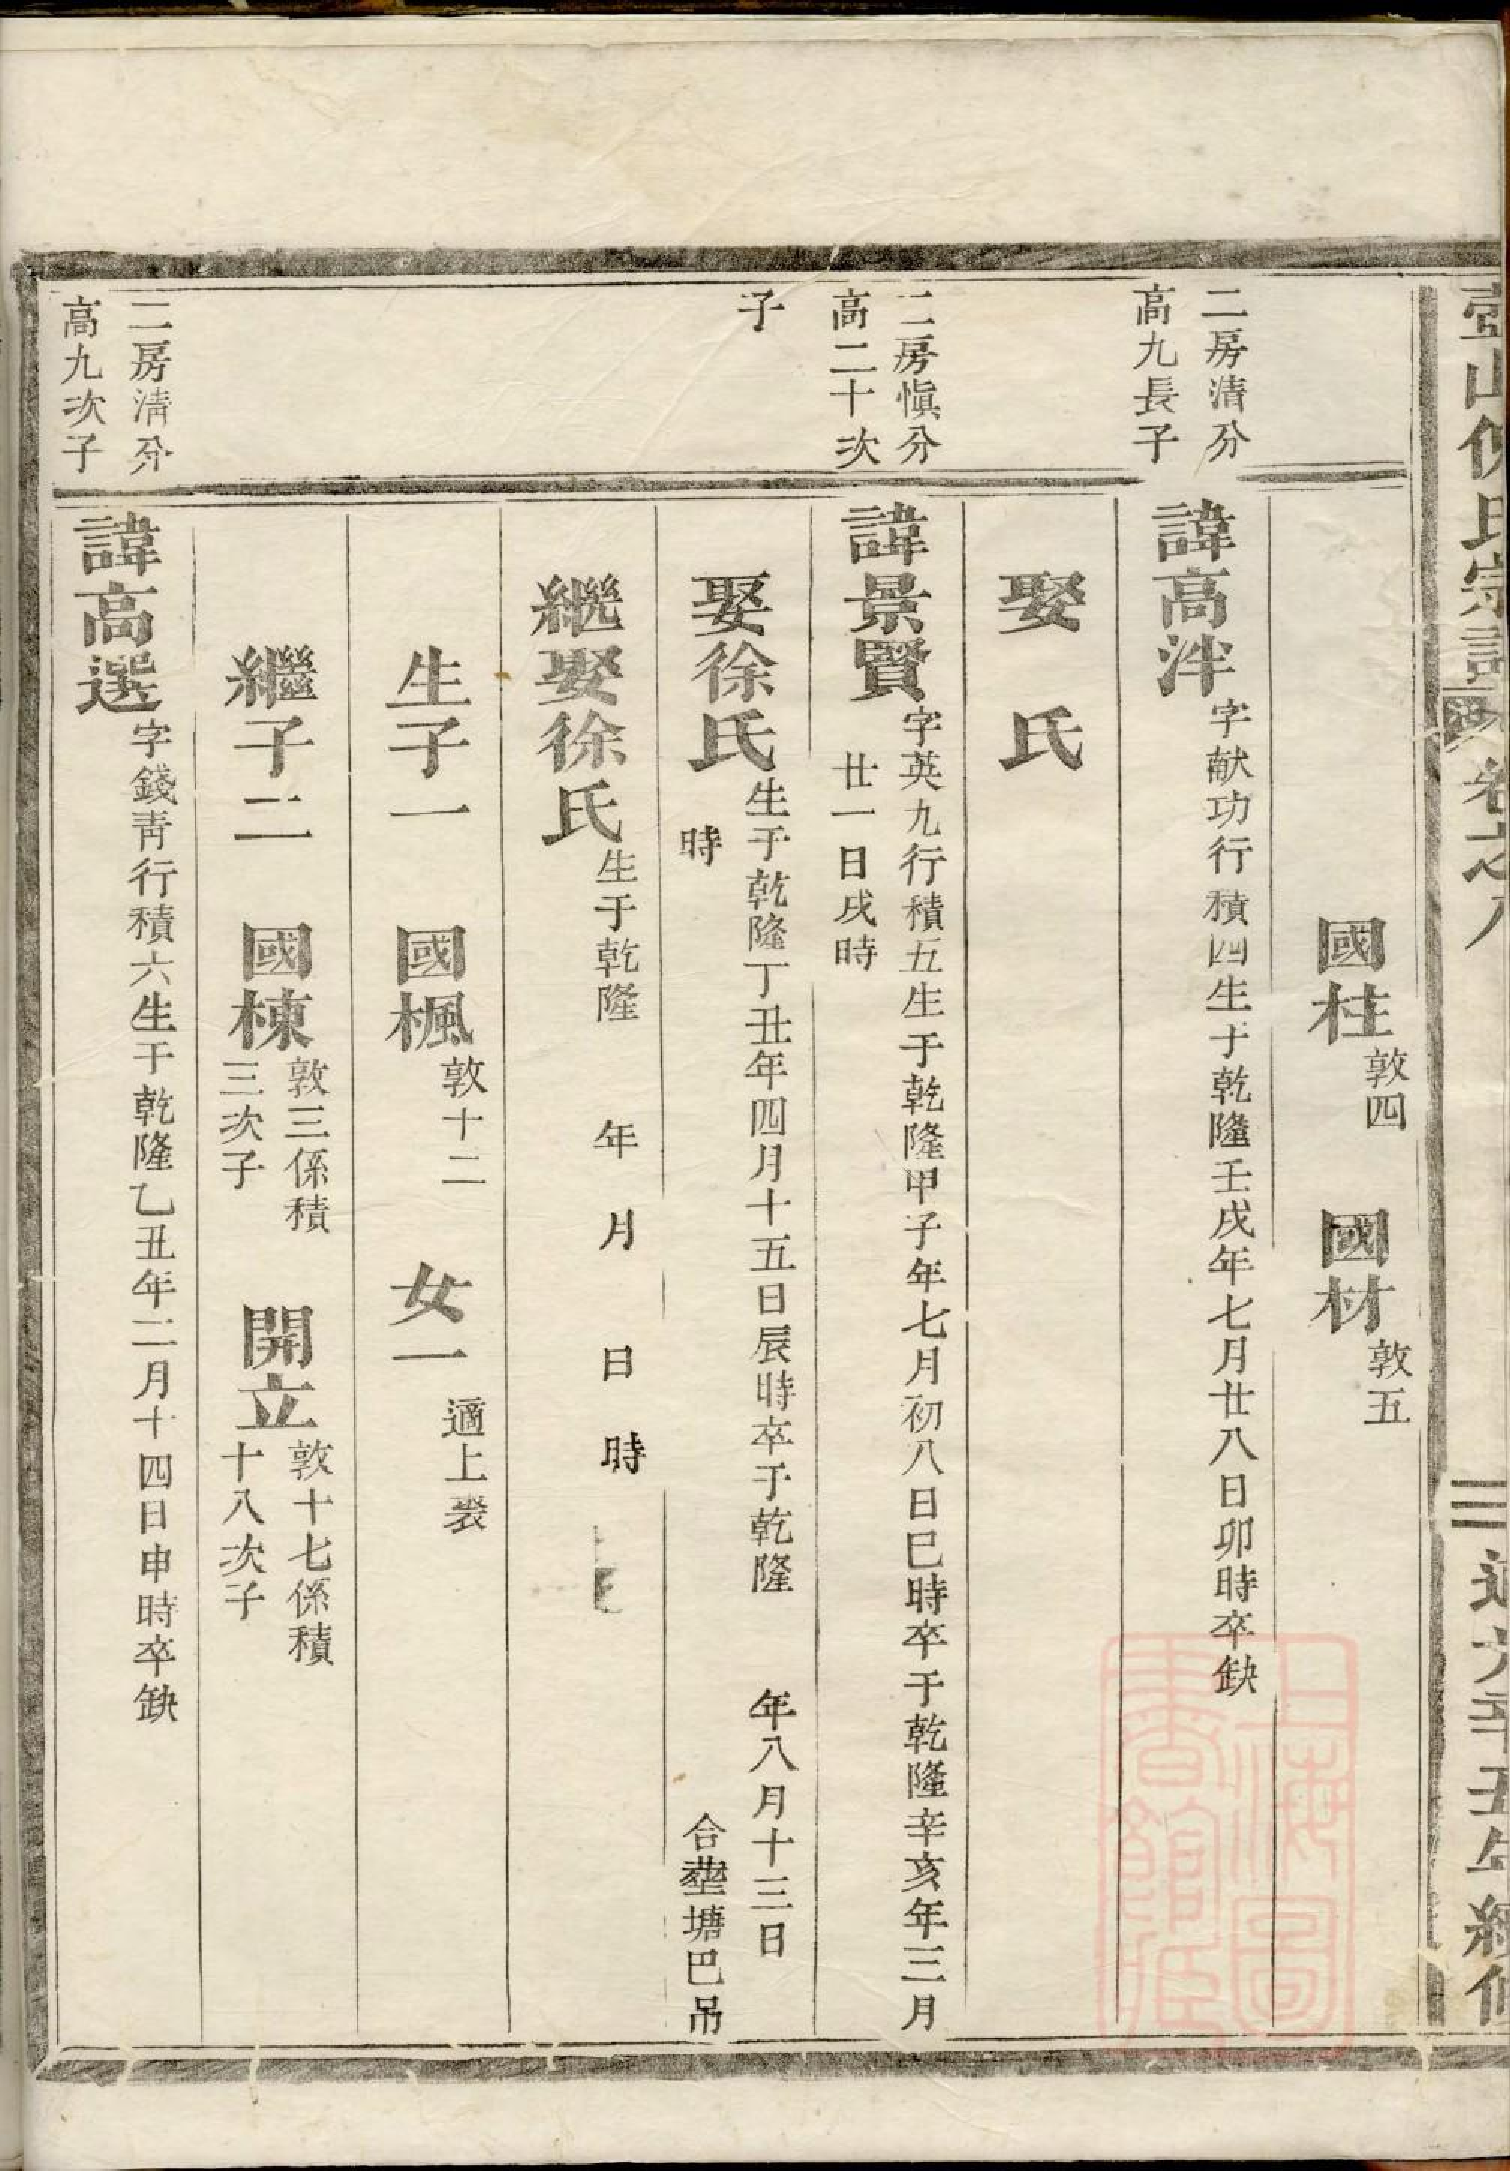 國柱 敦四 國材 敦五
二房清分
高九長子
諱高泮 字献功行積四生于乾隆壬戌年七月廿八日卯時卒缺
娶 氏
二房愼分
高二十次
子
諱景賢 字英九行積五生于乾隆甲子年七月初八日巳時卒于乾隆辛亥年三月
廿一日戌時
娶徐氏 生于乾隆丁丑年四月十五日辰時卒于乾隆 年八月十三日
時 合塟塘巴吊
繼娶徐氏 生于乾隆 年 月 日 時
生子一 國楓 敦十二 女一 適上裘
繼子二 國棟 敦三係積
三次子
開立 敦十七係積
十八次子
二房清分
高九次子
諱高選 字錢青行積六生于乾隆乙丑年二月十四日申時卒缺
上海圖書館藏